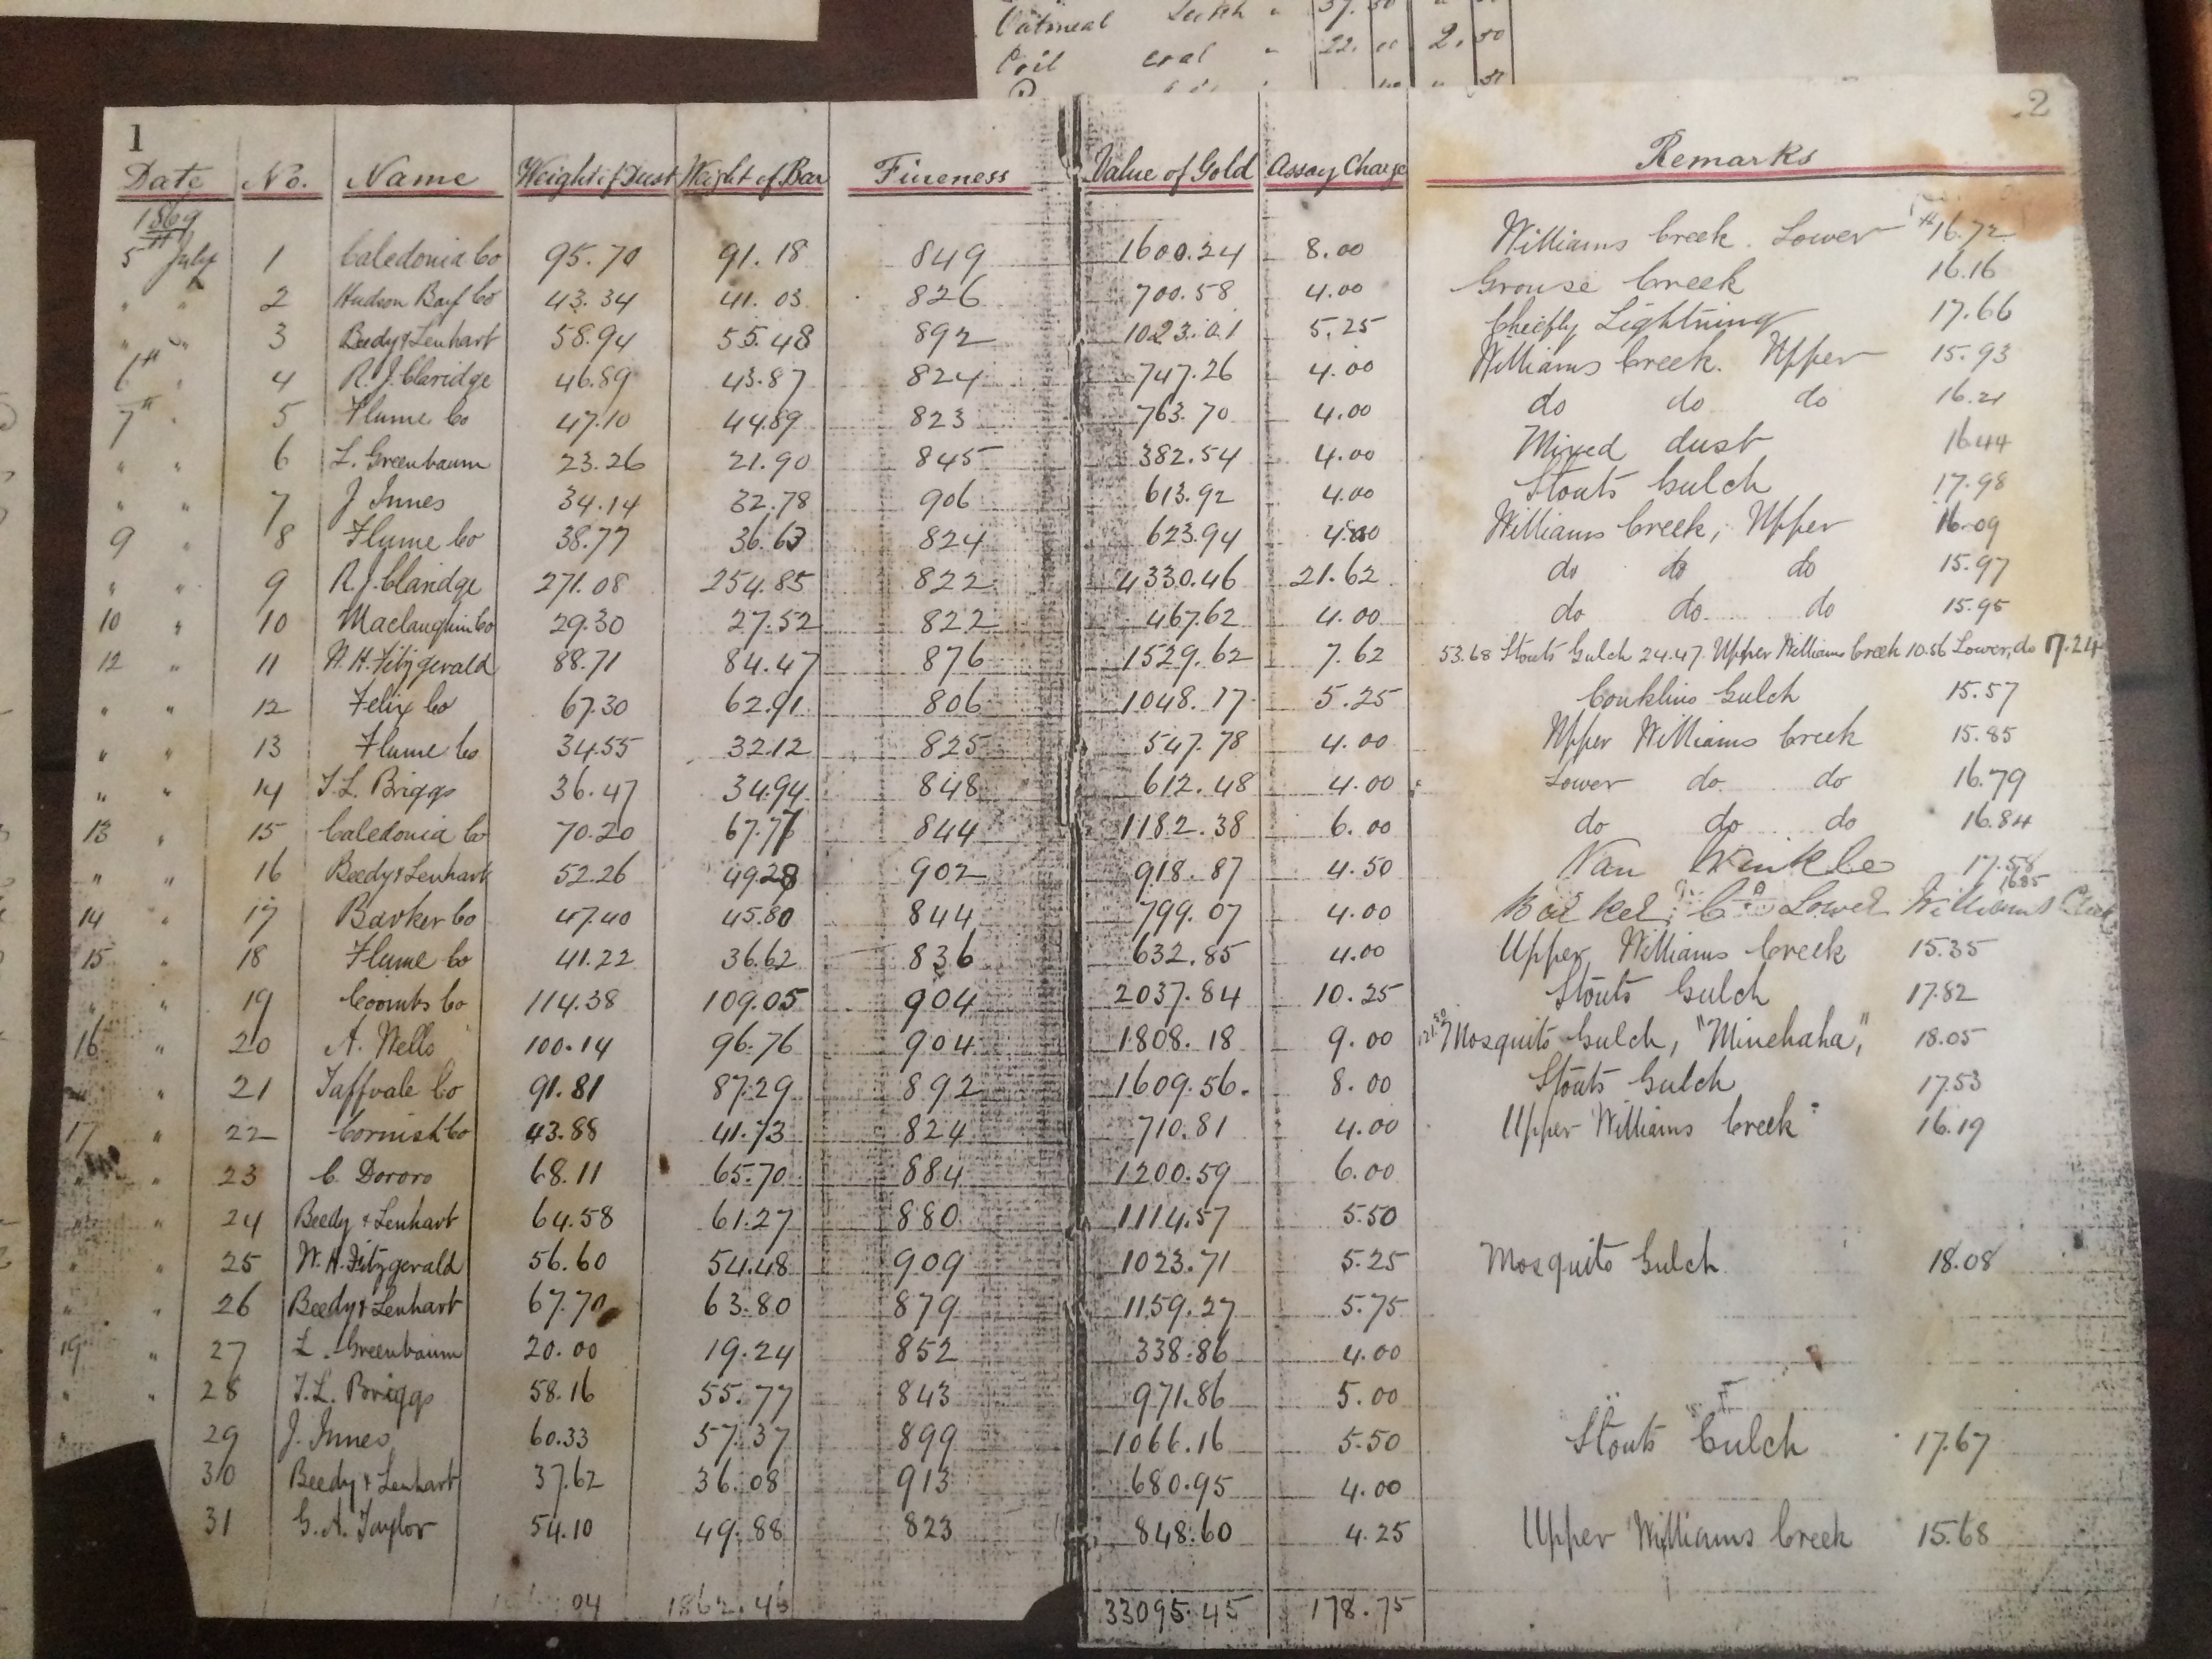 Oatmeal 37.50
Coil coal " 22. 2.50
1 2
Date No. Name Weight of Dust Weight of Bar Fineness Value of Gold Assay Charge Remarks
1869
5th July 1 Caledonia Co 95.70 91.18 849 1600.24 8.00 Williams Creek. Lower 16.72
" " 2 Hudson Bay Co 43.34 41.03 826 700.58 4.00 Grouse Creek 16.16
" " 3 Beedy & Lenhart 58.94 55.48 892 1023.01 5.25 Chiefly Lightning 17.66
6th " 4 R. J. Claridge 46.89 43.87 824 747.26 4.00 Williams Creek. Upper 15.93
7th " 5 Flume Co 47.10 44.89 823 763.70 4.00 do do do 16.21
" " 6 L. Greenbaum 23.26 21.90 845 382.54 4.00 Mixed dust 16.44
" " 7 J Innes 34.14 32.78 906 613.92 4.00 Stouts Gulch 17.98
9 " 8 Flume Co 38.77 36.63 824 623.94 4.00 Williams Creek, Upper 16.09
" " 9 R. J. Claridge 271.08 254.85 822 4330.46 21.62 do do do 15.97
10 " 10 Maclaughin Co 29.30 27.52 822 467.62 4.00 do do do 15.95
12 " 11 W. H. Fitzgerald 88.71 84.47 876 1529.62 7.62 53.68 Stouts Gulch 24.47 Upper Williams Creek 10.56 Lower, do 17.24
" " 12 Felix Co 67.30 62.91 806 1048.17 5.25 Conklins Gulch 15.57
" " 13 Flume Co 34.55 32.12 825 547.78 4.00 Upper Williams Creek 15.85
" " 14 T. L. Briggs 36.47 34.94 848 612.48 4.00 Lower do do 16.79
13 " 15 Caledonia Co 70.20 67.77 844 1182.38 6.00 do do do 16.84
" " 16 Beedy & Lenhart 52.26 49.28 902 918.87 4.50 Van Winkle 17.58
14 " 17 Barker Co 47.40 45.80 844 799.07 4.00 Barker Co Lower Williams Creek 16.85
15 " 18 Flume Co 41.22 36.62 836 632.85 4.00 Upper Williams Creek 15.35
" " 19 Coombs Co 114.38 109.05 904 2037.84 10.25 Stouts Gulch 17.82
16 " 20 A. Nello 100.14 96.76 904 1808.18 9.00 Mosquito Gulch, "Minehaha", 18.05
" " 21 Taffvale Co 91.81 87.29 892 1609.56 8.00 Stouts Gulch 17.53
17 " 22 Cornish Co 43.88 41.73 824 710.81 4.00 Upper Williams Creek 16.19
" " 23 C. Dororo 68.11 65.70 884 1200.59 6.00
" " 24 Beedy & Lenhart 64.58 61.27 880 1114.57 5.50
" " 25 W. H. Fitzgerald 56.60 54.48 909 1023.71 5.25 Mosquito Gulch 18.08
" " 26 Beedy & Lenhart 67.70 63.80 879 1159.27 5.75
19 " 27 L. Greenbaum 20.00 19.24 852 338.86 4.00
" " 28 T. L. Briggs 58.16 55.77 843 971.86 5.00
29 J. Innes 60.33 57.37 899 1066.16 5.50 Stouts Gulch 17.67
30 Beedy & Lenhart 37.62 36.08 913 680.95 4.00
31 G. A. Taylor 54.10 49.88 823 848.60 4.25 Upper Williams Creek 15.68
04 1862.46 33095.45 178.75